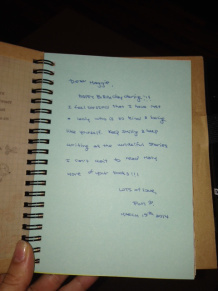 Dear Mary
Happy Birthday Mary!!!
I feel honored that I have met
a lady who is so true & living
her
Keep smiling & keep
writing all the wonderful stories
I can't wait to read many
more of your books!!!
Lots of Love,
March 13th 2014